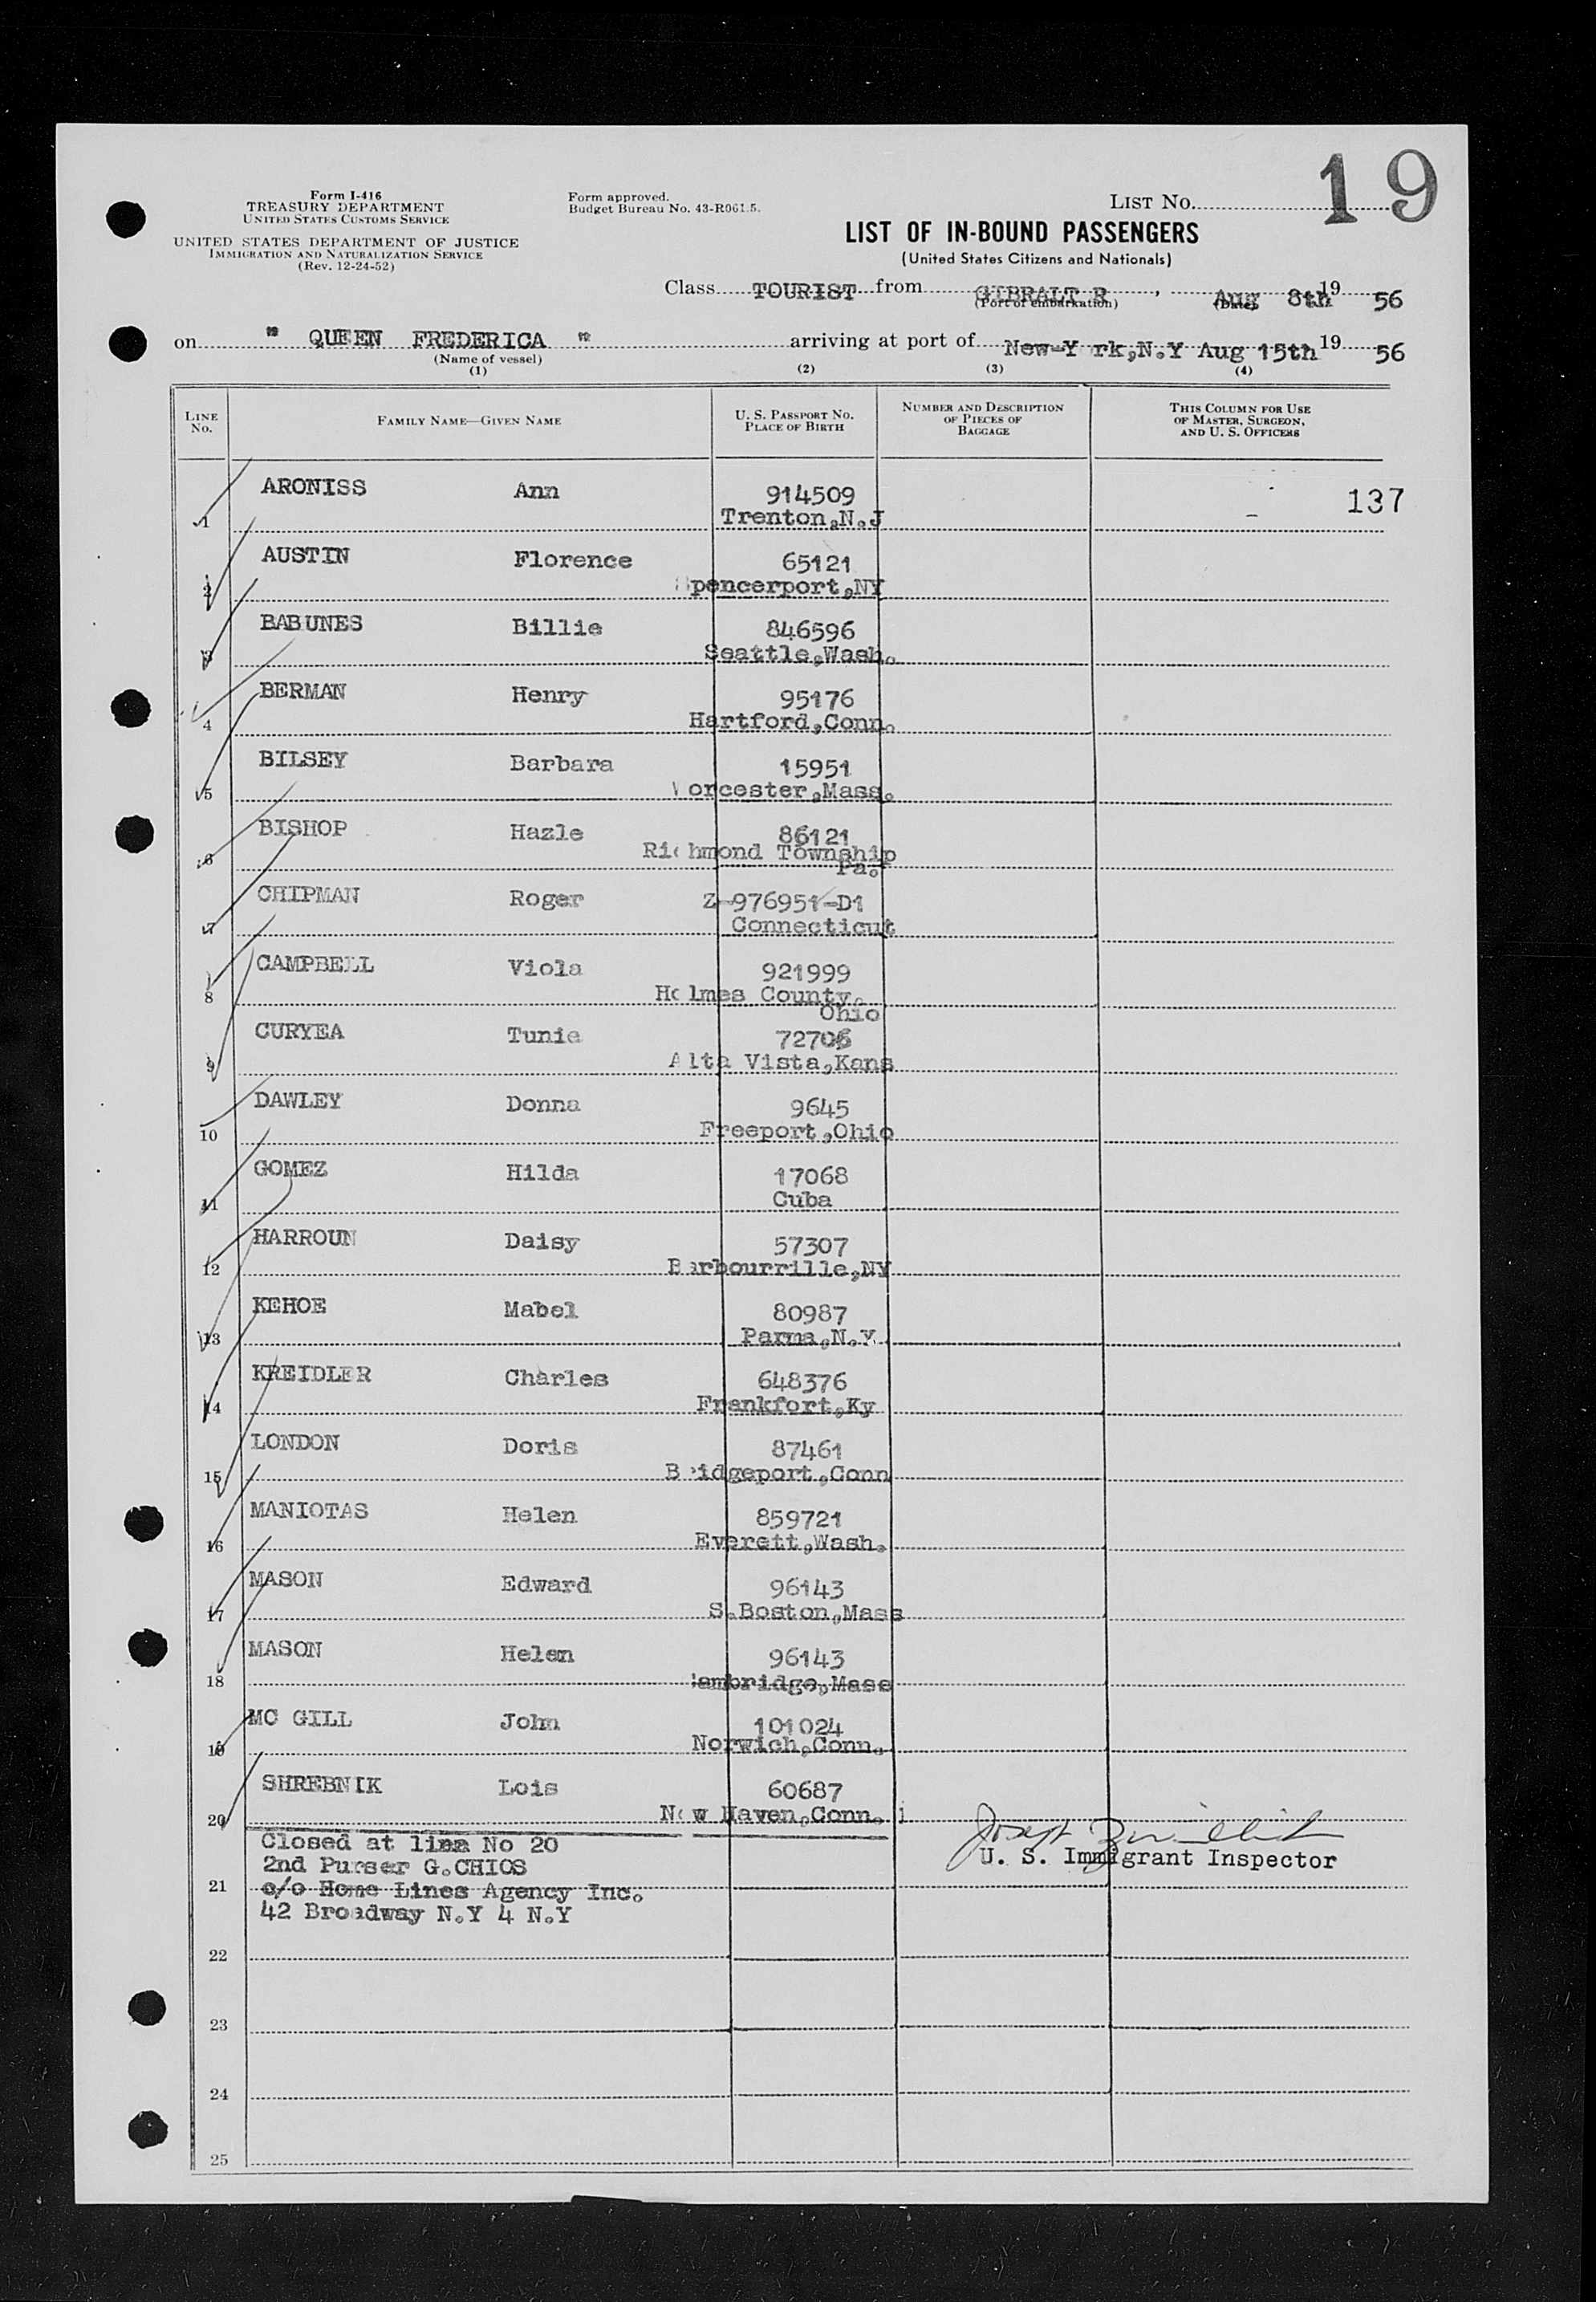 19
Form I-416
TREASURY DEPARTMENT
UNITED STATES CUSTOMS SERVICE
UNITED STATES DEPARTMENT OF JUSTICE
IMMIGRATION AND NATURALIZATION SERVICE
(Rev. 12-24-52)
Form approved.
Budget Bureau No. 43-R061.5.
LIST No.
LIST OF IN-BOUND PASSENGERS
(United States Citizens and Nationals)
Class TOURIST from GIBRALT R , Aug 8th 19 56
(Port of embarkation) (Date)
on " QUEEN FREDERICA " arriving at port of New-Y rk,N.Y Aug 15th 19 56
(Name of vessel)
(1) (2) (3) (4)
LINE No. FAMILY NAME—GIVEN NAME U. S. PASSPORT No. PLACE OF BIRTH NUMBER AND DESCRIPTION OF PIECES OF BAGGAGE THIS COLUMN FOR USE OF MASTER, SURGEON, AND U. S. OFFICERS
ARONISS Ann 914509 137
1 Trenton,N.J
AUSTIN Florence 65121
2 Spencerport,NY
BABUNES Billie 846596
3 Seattle,Wash.
BERMAN Henry 95176
4 Hartford,Conn.
BILSEY Barbara 15951
5 Worcester,Mass.
BISHOP Hazle 86121
6 Richmond Township
Pa.
CHIPMAN Roger Z-976951-D1
7 Connecticut
CAMPBELL Viola 921999
8 Holmes County.
Ohio
CURYEA Tunie 72706
9 Alta Vista,Kans
DAWLEY Donna 9645
10 Freeport,Ohio
GOMEZ Hilda 17068
11 Cuba
HARROUN Daisy 57307
12 Barbourrille,NY
KEHOE Mabel 80987
13 Parma,N.Y.
KREIDLER Charles 648376
14 Frankfort,Ky
LONDON Doris 87461
15 Bridgeport,Conn
MANIOTAS Helen 859721
16 Everett,Wash.
MASON Edward 96143
17 S.Boston,Mass
MASON Helen 96143
18 Cambridge,Mass
MC GILL John 101024
19 Norwich,Conn.
SHREBNIK Lois 60687
20 New Haven,Conn.
Closed at line No 20
U. S. Immigrant Inspector
2nd Purser G.CHIOS
21 c/o Home Lines Agency Inc.
42 Broadway N.Y 4 N.Y
22
23
24
25